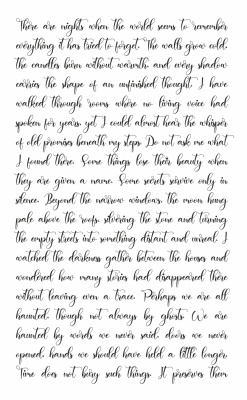 There are nights when the world seems to remember
everything it has tried to forget. The walls grow cold,
the candles burn without warmth, and every shadow
carries the shape of an unfinished thought. I have
walked through rooms where no living voice had
spoken for years, yet I could almost hear the whisper
of old promises beneath my steps. Do not ask me what
I found there. Some things lose their beauty when
they are given a name. Some secrets survive only in
silence. Beyond the narrow windows, the moon hung
pale above the roofs, silvering the stone and turning
the empty streets into something distant and unreal. I
watched the darkness gather between the houses and
wondered how many stories had disappeared there
without leaving even a trace. Perhaps we are all
haunted, though not always by ghosts. We are
haunted by words we never said, doors we never
opened, hands we should have held a little longer.
Time does not bury such things. It preserves them